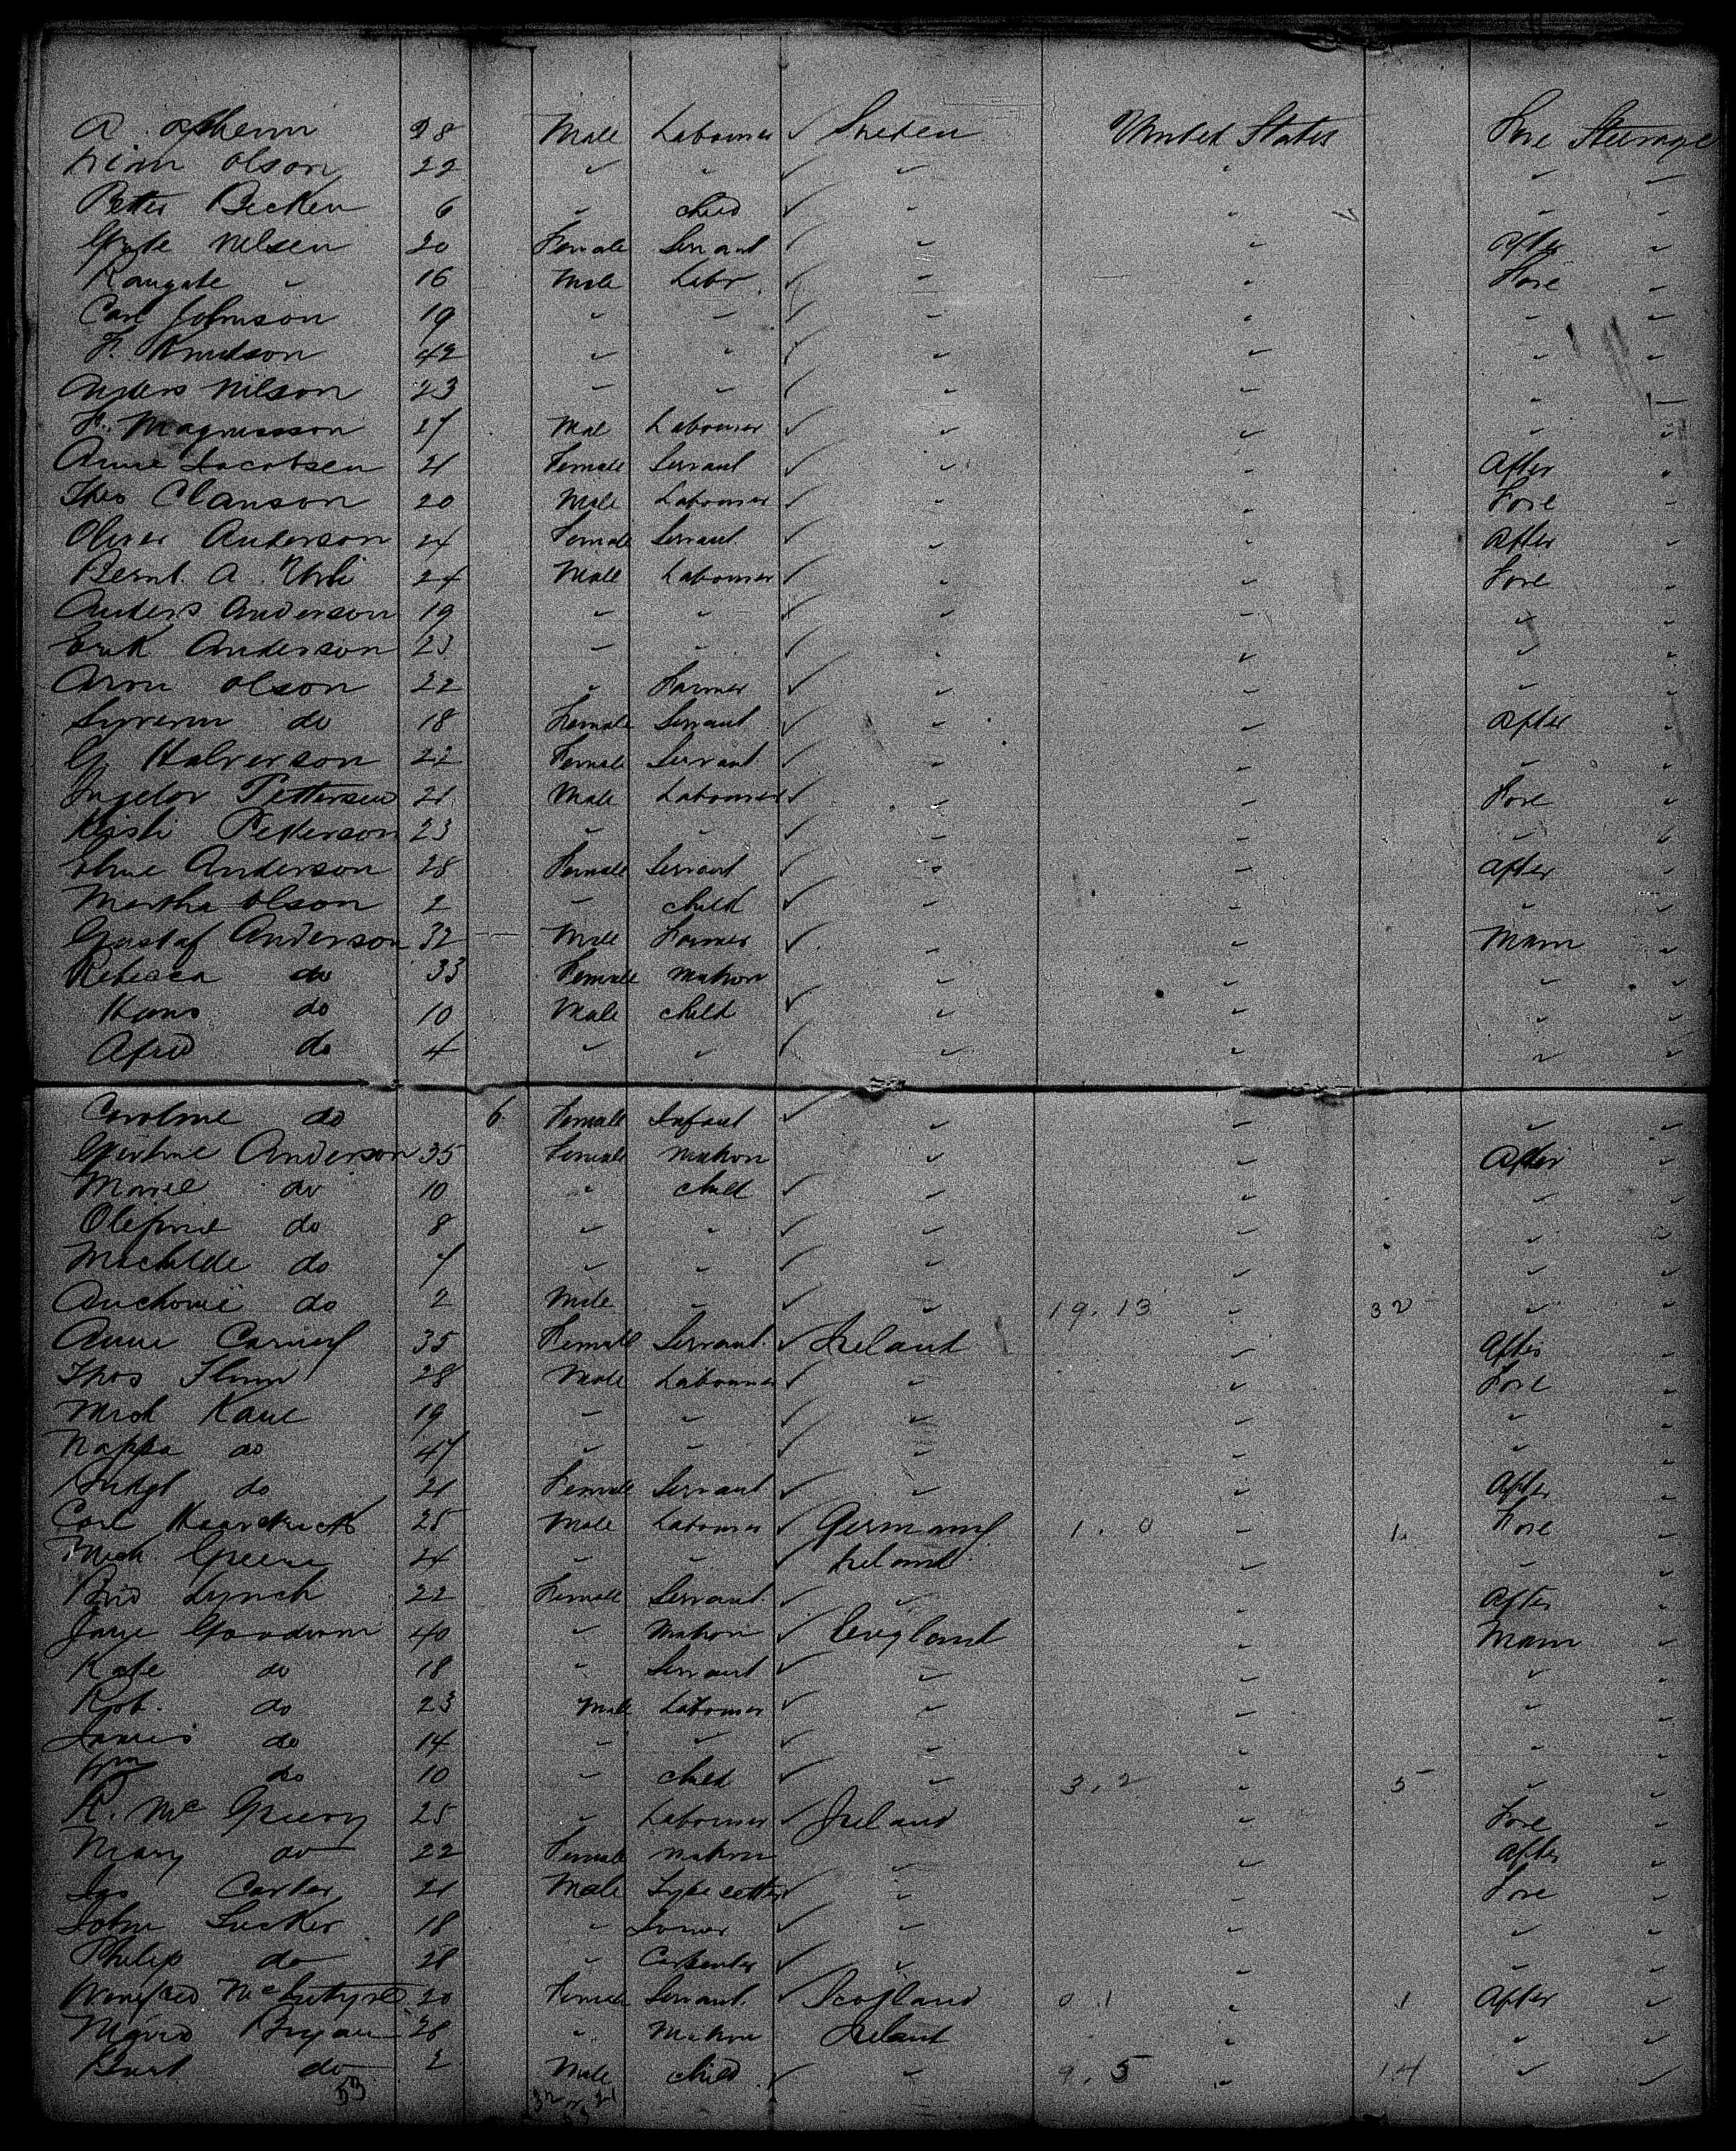 A. 28 Male Labourer ✓ Sweden United States Fore Steerage
Olson 22 " " ✓ " " " "
Becken 6 " child ✓ " " " "
Nelsen 20 Female Servant ✓ " " After "
Rangate " 16 Male Labr. ✓ " " Fore "
Carl Johnson 19 " " ✓ " " " "
F. Knudson 42 " " ✓ " " " "
Anders Nilson 23 " " ✓ " " " "
F. Magnusson 27 Mal Labourer ✓ " " " "
Anne Jacobsen 21 Female Servant ✓ " " After "
Theo Clanson 20 Male Labourer ✓ " " Fore "
Oliver Anderson 24 Female Servant ✓ " " After "
Bernt. A. 24 Male Labourer ✓ " " Fore "
Anders Anderson 19 " " ✓ " " " "
Erik Anderson 23 " " ✓ " " " "
Aron Olson 22 " Farmer ✓ " " " "
do 18 Female Servant ✓ " " After "
G Halverson 22 Female Servant ✓ " " " "
Pettersen 21 Male Labourer ✓ " " Fore "
Petterson 23 " " ✓ " " " "
Anderson 28 Female Servant ✓ " " After "
Martha Olson 2 " child ✓ " " " "
Gustaf Anderson 32 Male Farmer ✓ " " Main "
Rebecca do 33 Female Matron " " " "
Hans do 10 Male child ✓ " " " "
Afred do 4 " " ✓ " " " "
Caroline do 6 Female Infant ✓ " " " "
Anderson 35 Female Matron " " After "
Marie do 10 " child ✓ " " " "
do 8 " " ✓ " " " "
Machilde do 7 " " ✓ " " " "
do 2 Male " ✓ " 19. 13 " 32 " "
Anne Carney 35 Female Servant ✓ Ireland " After "
Thos Flinn 28 Male Labourer ✓ " " Fore "
Mich Kane 19 " " ✓ " " " "
do 47 " " ✓ " " " "
do 21 Female Servant ✓ " " After "
Carl 25 Male Labourer ✓ Germany 1. 0 " 1. Fore
Mich. Greene 24 " " ✓ Ireland " " "
Brid Lynch 22 Female Servant ✓ " " After "
Jane Goodwin 40 " Matron ✓ England " Main "
Kate do 18 " Servant ✓ " " " "
Rob. do 23 Male Labourer ✓ " " " "
James do 14 " " ✓ " " " "
Wm do 10 " child ✓ " 3. 2 " 5 " "
R. Mc 25 " Labourer ✓ Ireland " Fore "
Mary do 22 Female Matron " " After "
Jas Carter 21 Male Typesetter ✓ " " Fore "
John Tucker 18 " Joiner ✓ " " " "
Philip do 28 " Carpenter ✓ " " " "
Winifred McIntyre 20 Female Servant ✓ Scotland 0. 1 " 1 After "
Bryan 28 " Matron Ireland " " "
do 2 Male child ✓ " 9. 5 " 14 " "
53 32 21
53